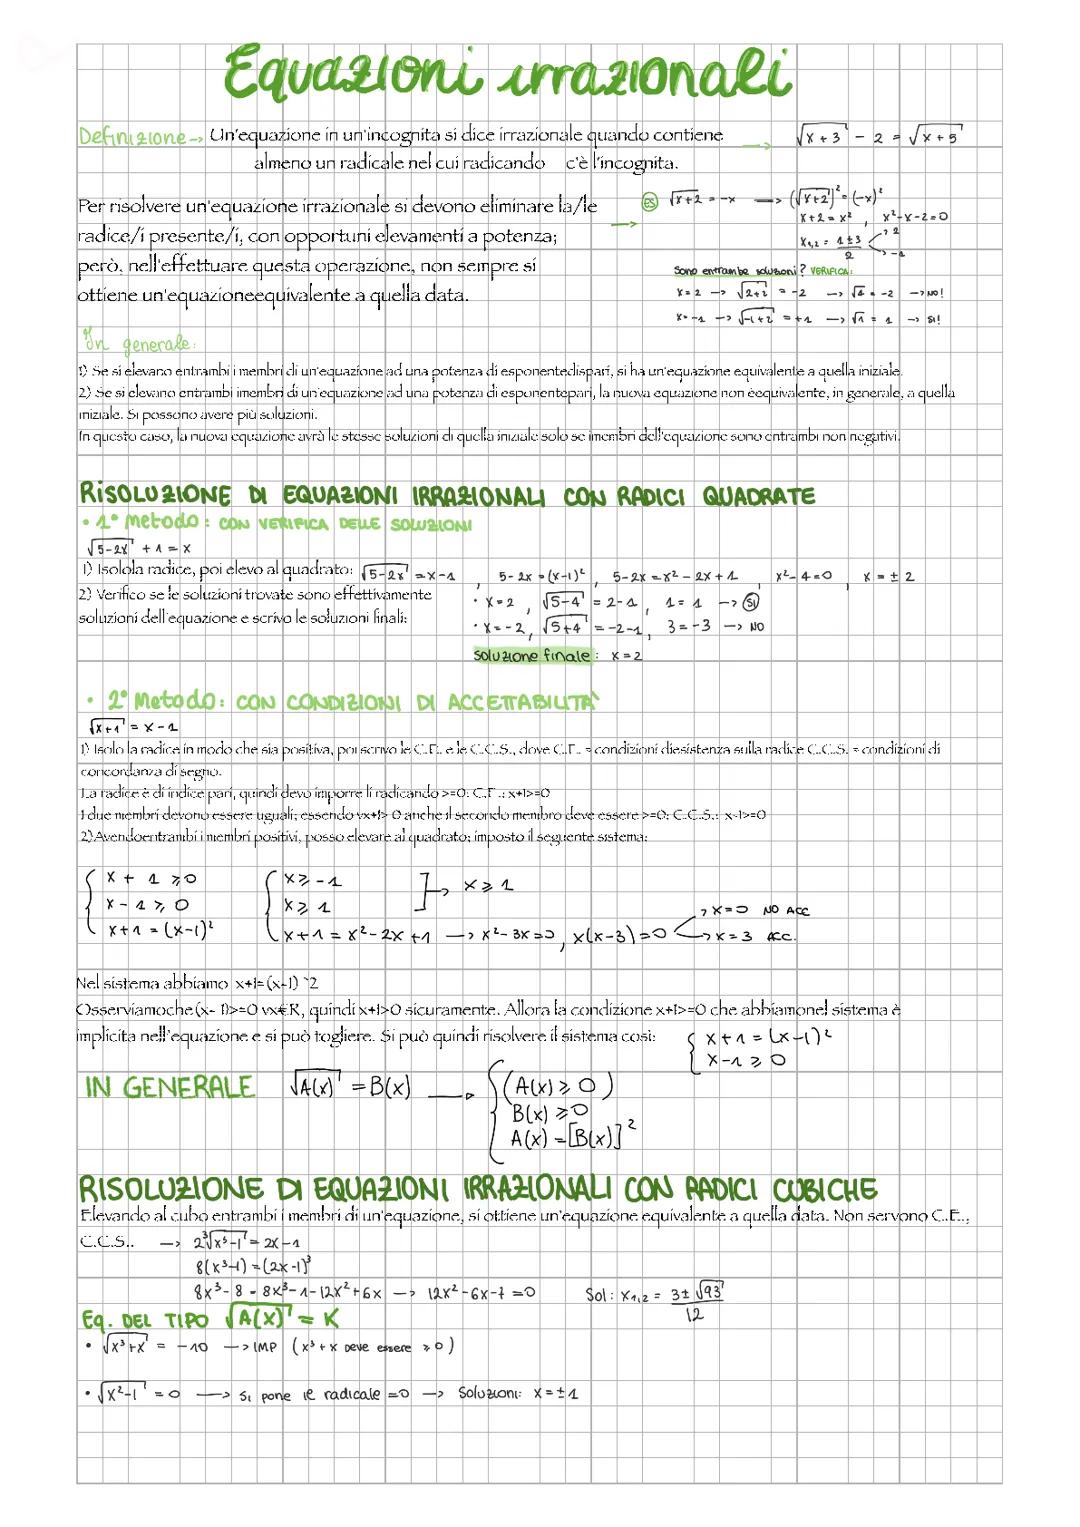 Equazioni irrazionali
Definizione → Un'equazione in un'incognita si dice irrazionale quando contiene → √(x+3) - 2 = √(x+5)
almeno un radicale nel cui radicando c'è l'incognita.
Per risolvere un'equazione irrazionale si devono eliminare la/le
radice/i presente/i, con opportuni elevamenti a potenza;
però, nell'effettuare questa operazione, non sempre si
ottiene un'equazioneequivalente a quella data.
→ ES √(x+2) = -x → (√(x+2))² = (-x)²
x+2 = x² , x²-x-2=0
x₁,₂ = (1±3)/2 → 2 → -1
Sono entrambe soluzioni? VERIFICA:
x=2 → √(2+2) = -2 → √4 = -2 → NO!
x=-1 → √(-1+2) = +1 → √1 = 1 → SI!
In generale:
1) Se si elevano entrambi i membri di un'equazione ad una potenza di esponentedispari, si ha un'equazione equivalente a quella iniziale.
2) Se si elevano entrambi imembri di un'equazione ad una potenza di esponentepari, la nuova equazione non èequivalente, in generale, a quella
iniziale. Si possono avere più soluzioni.
In questo caso, la nuova equazione avrà le stesse soluzioni di quella iniziale solo se imembri dell'equazione sono entrambi non negativi.
RISOLUZIONE DI EQUAZIONI IRRAZIONALI CON RADICI QUADRATE
• 1° Metodo: CON VERIFICA DELLE SOLUZIONI
√(5-2x) + 1 = x
1) Isolola radice, poi elevo al quadrato: √(5-2x) = x-1 , 5-2x = (x-1)² , 5-2x = x²-2x+1 , x²-4=0 , x = ±2
2) Verifico se le soluzioni trovate sono effettivamente
soluzioni dell'equazione e scrivo le soluzioni finali:
• x=2 , √(5-4) = 2-1 , 1=1 → SI
• x=-2 , √(5+4) = -2-1 , 3=-3 → NO
soluzione finale: x=2
• 2° Metodo: CON CONDIZIONI DI ACCETTABILITÀ
√(x+1) = x-1
1) Isolo la radice in modo che sia positiva, poi scrivo le C.E. e le C.C.S., dove C.E. = condizioni diesistenza sulla radice C.C.S. = condizioni di
concordanza di segno.
La radice è di indice pari, quindi devo imporre il radicando >=0: C.E.: x+1>=0
I due membri devono essere uguali; essendo √x+1> 0 anche il secondo membro deve essere >=0: C.C.S.: x-1>=0
2)Avendoentrambi i membri positivi, posso elevare al quadrato; imposto il seguente sistema:
{ x + 1 ⩾ 0 { x ⩾ -1 ] → x ⩾ 1
x - 1 ⩾ 0 x ⩾ 1
x+1 = (x-1)² x+1 = x²-2x+1 → x²-3x=0 , x(x-3)=0 → x=0 NO ACC → x=3 ACC.
Nel sistema abbiamo x+1=(x-1)^2
Osserviamoche (x-1)>=0 vx€R, quindi x+1>0 sicuramente. Allora la condizione x+1>=0 che abbiamonel sistema è
implicita nell'equazione e si può togliere. Si può quindi risolvere il sistema così: { x+1 = (x-1)²
x-1 ⩾ 0
IN GENERALE √A(x) = B(x) → { (A(x) ⩾ 0)
B(x) ⩾ 0
A(x) = [B(x)]²
RISOLUZIONE DI EQUAZIONI IRRAZIONALI CON RADICI CUBICHE
Elevando al cubo entrambi i membri di un'equazione, si ottiene un'equazione equivalente a quella data. Non servono C.E.,
C.C.S.. → 2∛(x³-1) = 2x-1
8(x³-1) = (2x-1)³
8x³-8 = 8x³-1-12x²+6x → 12x²-6x-7=0 Sol: x₁,₂ = (3±√93)/12
Eq. DEL TIPO √A(x) = K
• √(x³+x) = -10 → IMP (x³+x Deve essere ⩾0)
• √(x²-1) = 0 → si pone il radicale =0 → Soluzioni: x=±1